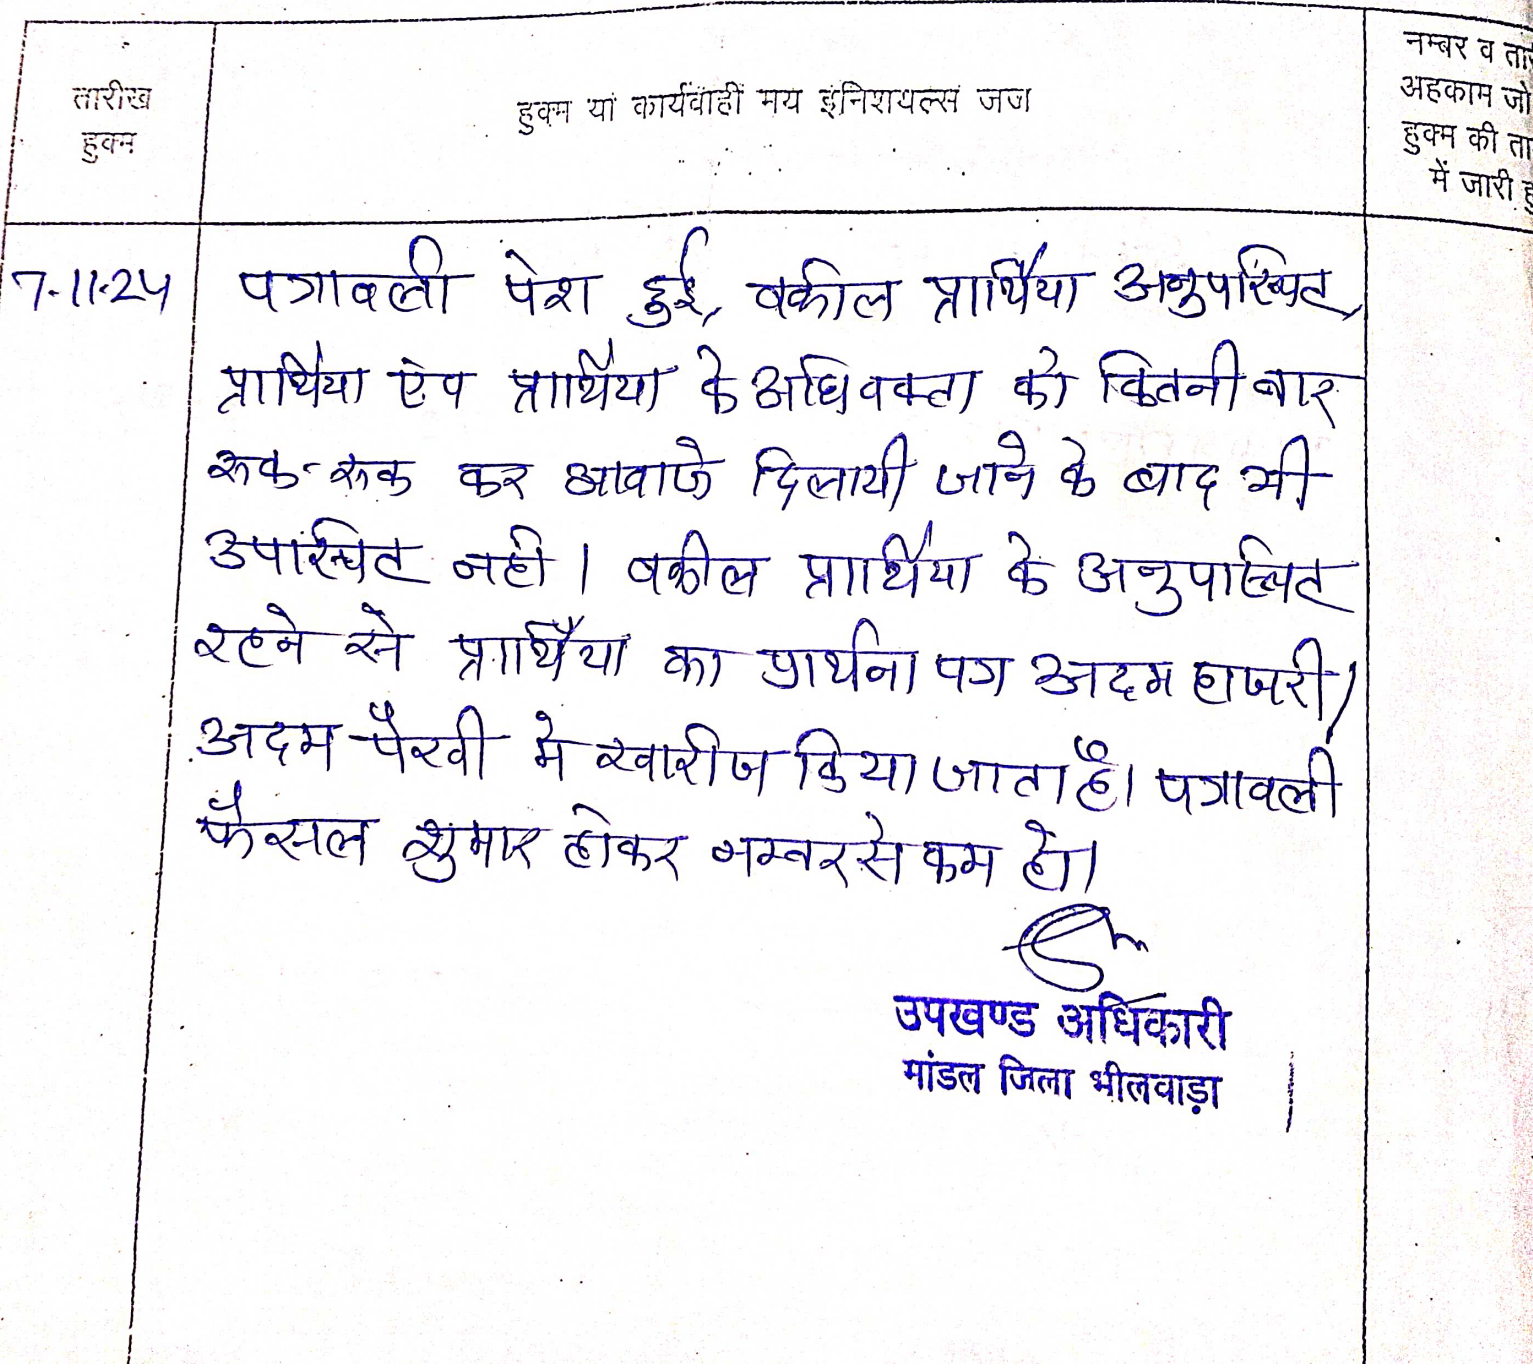 तारीख
हुक्म
हुक्म या कार्यवाही मय इनिशियल्स जज
नम्बर व ता
अहकाम जो
हुक्म की ता
में जारी हु
7-11-24
पत्रावली पेश हुई, वकील प्रार्थिया अनुपस्थित,
प्रार्थिया एंव प्रार्थिया के अधिवक्ता को कितनी बार
रूक-रूक कर आवाजे दिलायी जाने के बाद भी
उपस्थित नही। वकील प्रार्थिया के अनुपस्थित
रहने से प्रार्थिया का प्रार्थना पत्र अदम हाजरी/
अदम पैरवी मे खारीज किया जाता है। पत्रावली
फैसल शुमार होकर नम्बर से कम हो।
उपखण्ड अधिकारी
मांडल जिला भीलवाड़ा